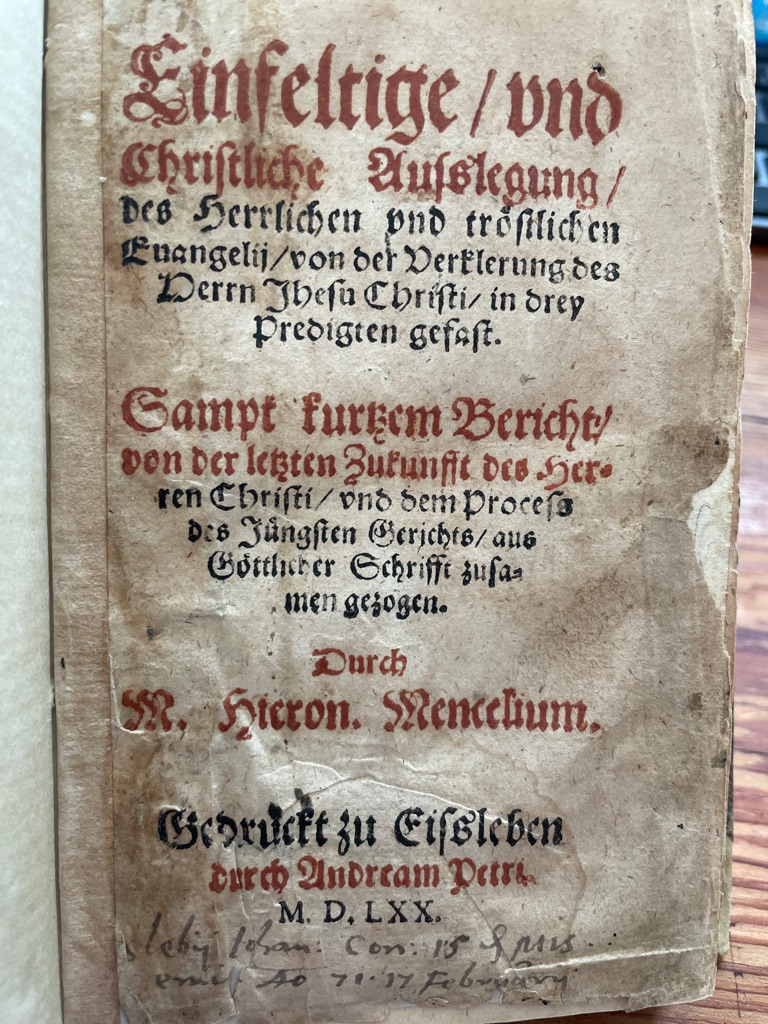 Einfeltige / vnd
Chriſtliche Auſslegung /
des Herrlichen vnd tröſtlichen
Euangelij / von der Verklerung des
Herrn Jheſu Chriſti / in drey
Predigten gefaſt.
Sampt kurtzem Bericht /
von der letzten Zukunfft des Her-
ren Chriſti / vnd dem Proceſs
des Jüngſten Gerichts / aus
Göttlicher Schrifft zuſa-
men gezogen.
Durch
M. Hieron. Mencelium.
Gedruckt zu Eiſsleben
durch Andream Petri.
M. D. LXX.
Iohan: Con: 15
emit Ao 71. 17 February